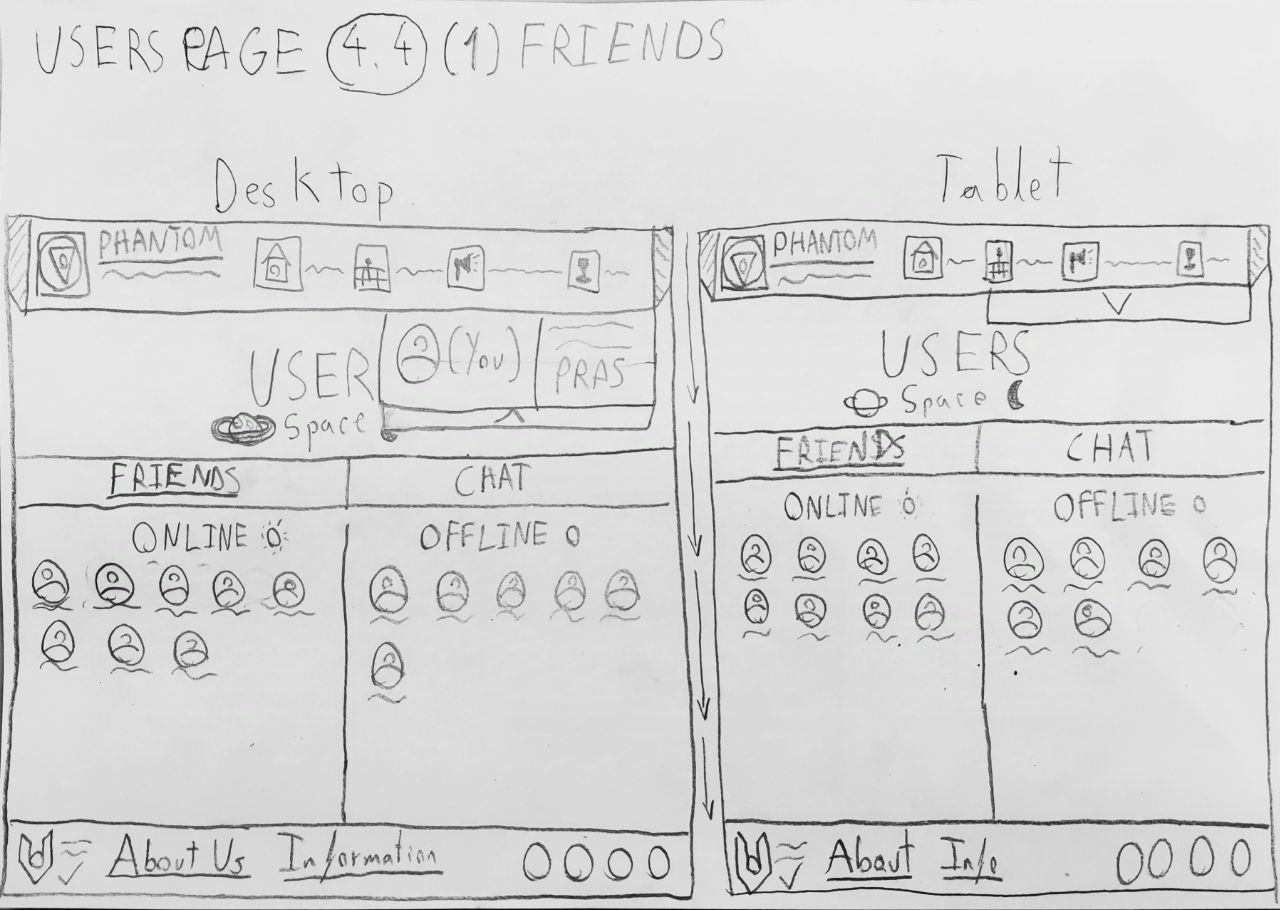 USERS PAGE 4.4 (1) FRIENDS
Desktop
PHANTOM
USER
(You)
PRAS
Space
FRIENDS
CHAT
ONLINE
OFFLINE
About Us
Information
Tablet
PHANTOM
USERS
Space
FRIENDS
CHAT
ONLINE
OFFLINE
About
Info